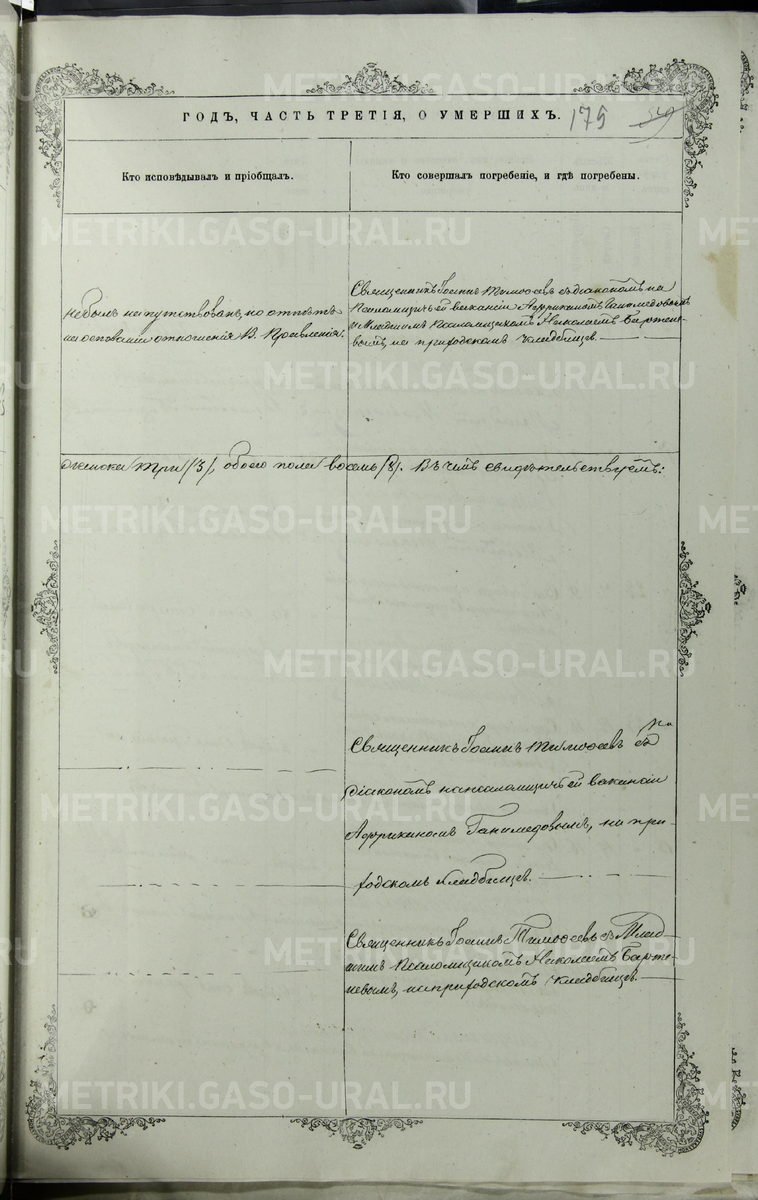 ГОДЪ, ЧАСТЬ ТРЕТІЯ, О УМЕРШИХЪ.
175
Кто исповѣдывалъ и пріобщалъ.
Кто совершалъ погребеніе, и гдѣ погребены.
не былъ напутствованъ, но отпѣтъ
на основаніи отношенія В. Правленія.
Священникъ Іоаннъ Тимоѳеевъ съ діакономъ на
Псаломщичьей вакансіи Африканомъ Ганимедовымъ
и младшимъ Псаломщикомъ Николаемъ Бартене-
вымъ, на приходскомъ кладбищѣ.
женска три /3/, обоего пола восемь /8/. Въ чемъ свидѣтельствуемъ:
Священникъ Іоаннъ Тимоѳеевъ съ
діакономъ на псаломщичьей вакансіи
Африканомъ Ганимедовымъ, на при-
ходскомъ кладбищѣ.
Священникъ Іоаннъ Тимоѳеевъ съ Млад-
шимъ Псаломщикомъ Николаемъ Барте-
невымъ, на приходскомъ кладбищѣ.
METRIKI.GASO-URAL.RU